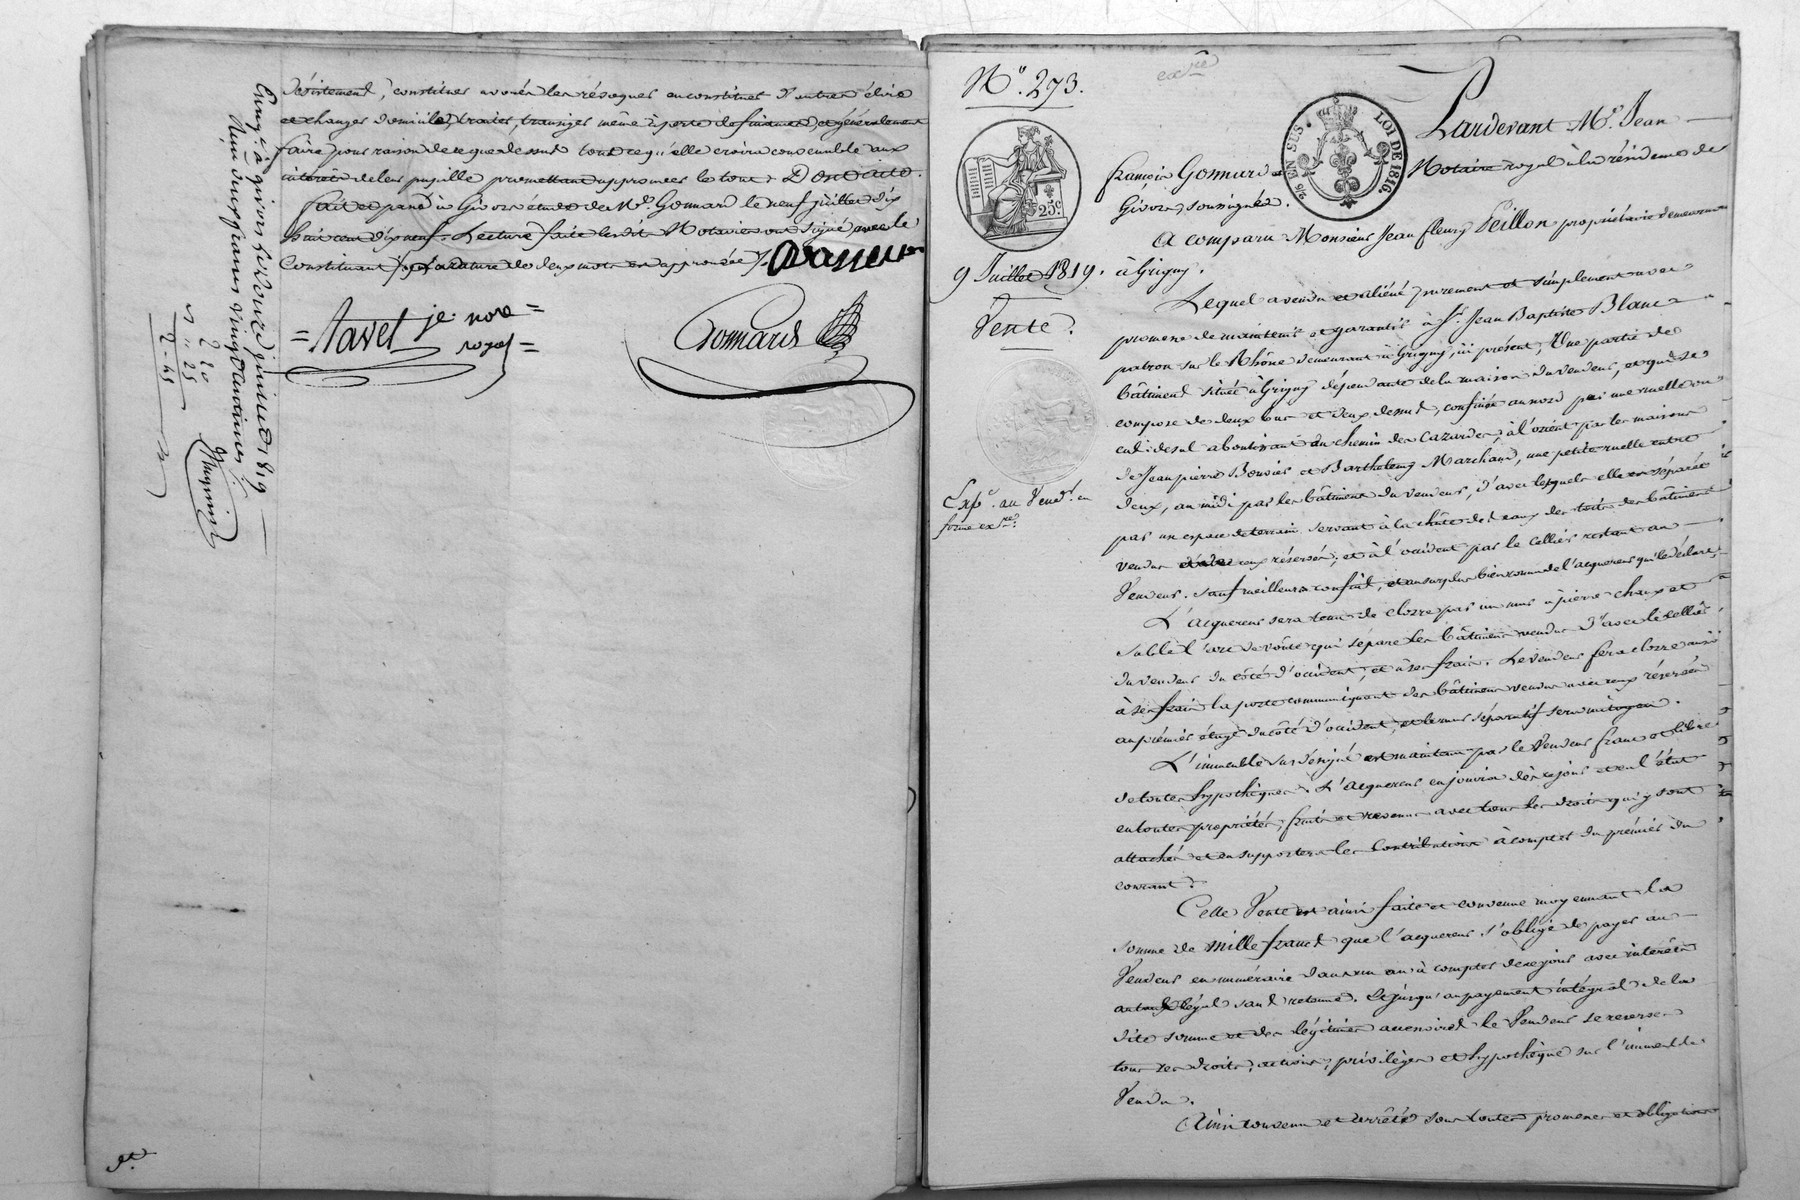 désistement, constituer avoués les révoquer en constituer d'autres élire
et changer domicile, traiter, transiger même à perte de finances, et généralement
faire pour raison de ce que dessus tout ce qu'elle croira convenable aux
intérêts de leur pupille promettant approuver le tout. Dont acte.
fait et passé à Givors étude de Me Gonnard le neuf juillet dix
huit cent dix neuf. Lecture faite lesdits Notaires ont signé avec le
Constituant
Tavel je. nore
royal
Gonnard
Enregé à givors le douze juillet 1819
Reçu deux francs vingt centimes
2 20
" 25
2 - 45
N° 273.
25c
2/6 EN SUS. LOI DE 1816
9 Juillet 1819.
Vente.
Expé. au Vendr. en
forme exre.
Pardevant Me. Jean
françois Gonnard Notaire royal à la résidence de
Givors, soussigné.
A comparu Monsieur Jean fleury Peillon propriétaire demeurant
à Grigny.
Lequel a vendu et aliéné purement et simplement avec
promesse de maintenir et garantir à Sr. Jean Baptiste Blanc
patron sur le Rhône demeurant à Grigny, ici présent, Une partie de
bâtiment située à Grigny dépendante de la maison du vendeur, et qui se
compose de deux bas et deux dessus, confinée au nord par une ruelle ou
cul-de-sac aboutissant au chemin des Cazardes, à l'orient par les maisons
de Jean pierre Bouvier et Barthelemy Marchand, une petite ruelle entre
deux, au midi par les bâtiments du vendeur, d'avec lesquels elle est séparée
par un espace de terrain servant à la chûte des eaux des toits des bâtiments
vendus et de ceux réservés; et à l'occident par le cellier restant au
Vendeur. Sauf meilleurs confins, et au surplus bien connu de l'acquereur qui le déclare.
L'acquereur sera tenu de clorre par un mur à pierre chaux et
sable l'arc de voûte qui sépare les bâtiments vendus d'avec le cellier
du vendeur du côté d'occident, et à ses frais. Le vendeur fera clorre aussi
à ses frais la porte communiquant des bâtiments vendus avec ceux réservés
au prémier étage du côté d'occident, et le mur séparatif sera mitoyen.
L'immeuble sus désigné est maintenu par le Vendeur franc et libre
de toutes hypothèques. L'acquereur en jouira dès ce jour et en l'état
en toutes propriétés, fruits et revenus avec tous les droits qui y sont
attachés et en supportera les contributions à compter du prémier du
courant.
Cette Vente est ainsi faite et convenue moyennant la
somme de mille francs que l'acquereur s'oblige de payer au
Vendeur en numéraire dans un an à compter de ce jour avec intérêts
au taux légal sans retenue. Et jusqu'au payement intégral de la
dite somme et des légitimes accessoires le Vendeur se reserve
tous ses droits, actions, privilèges et hypothèque sur l'immeuble
Vendu.
Ainsi convenu et arrêté sous toutes promesses et obligations